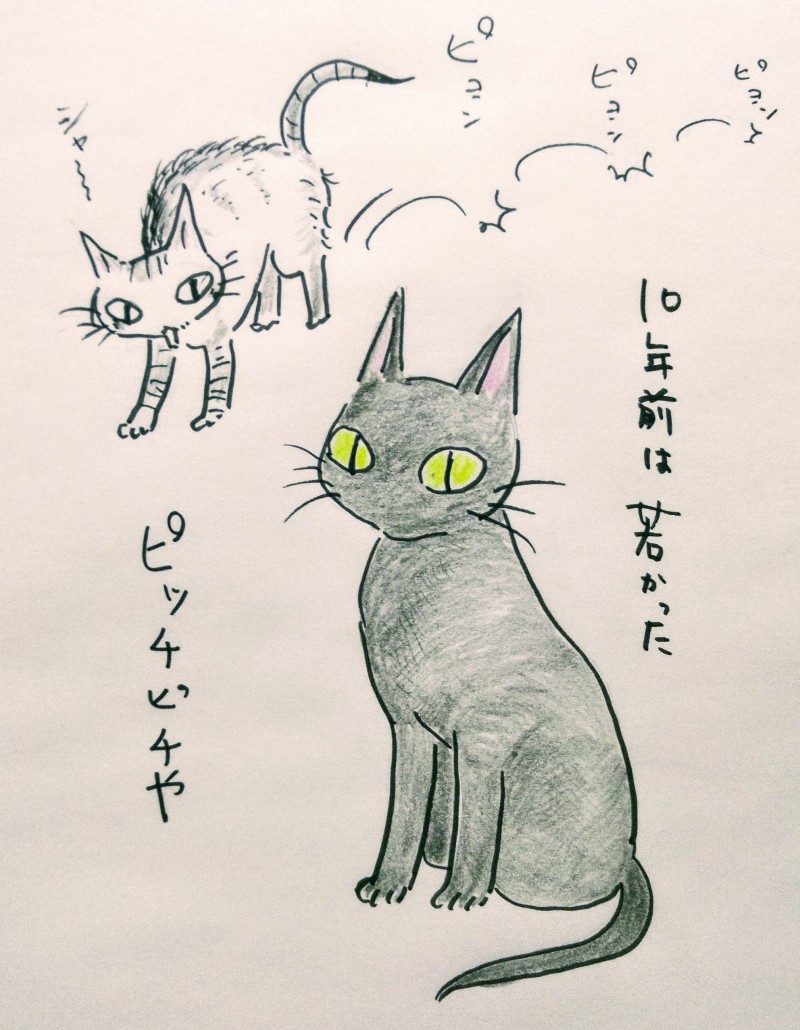 ピョン
ピョン
ピョン
シャー
10年前は若かった
ピッチピチや